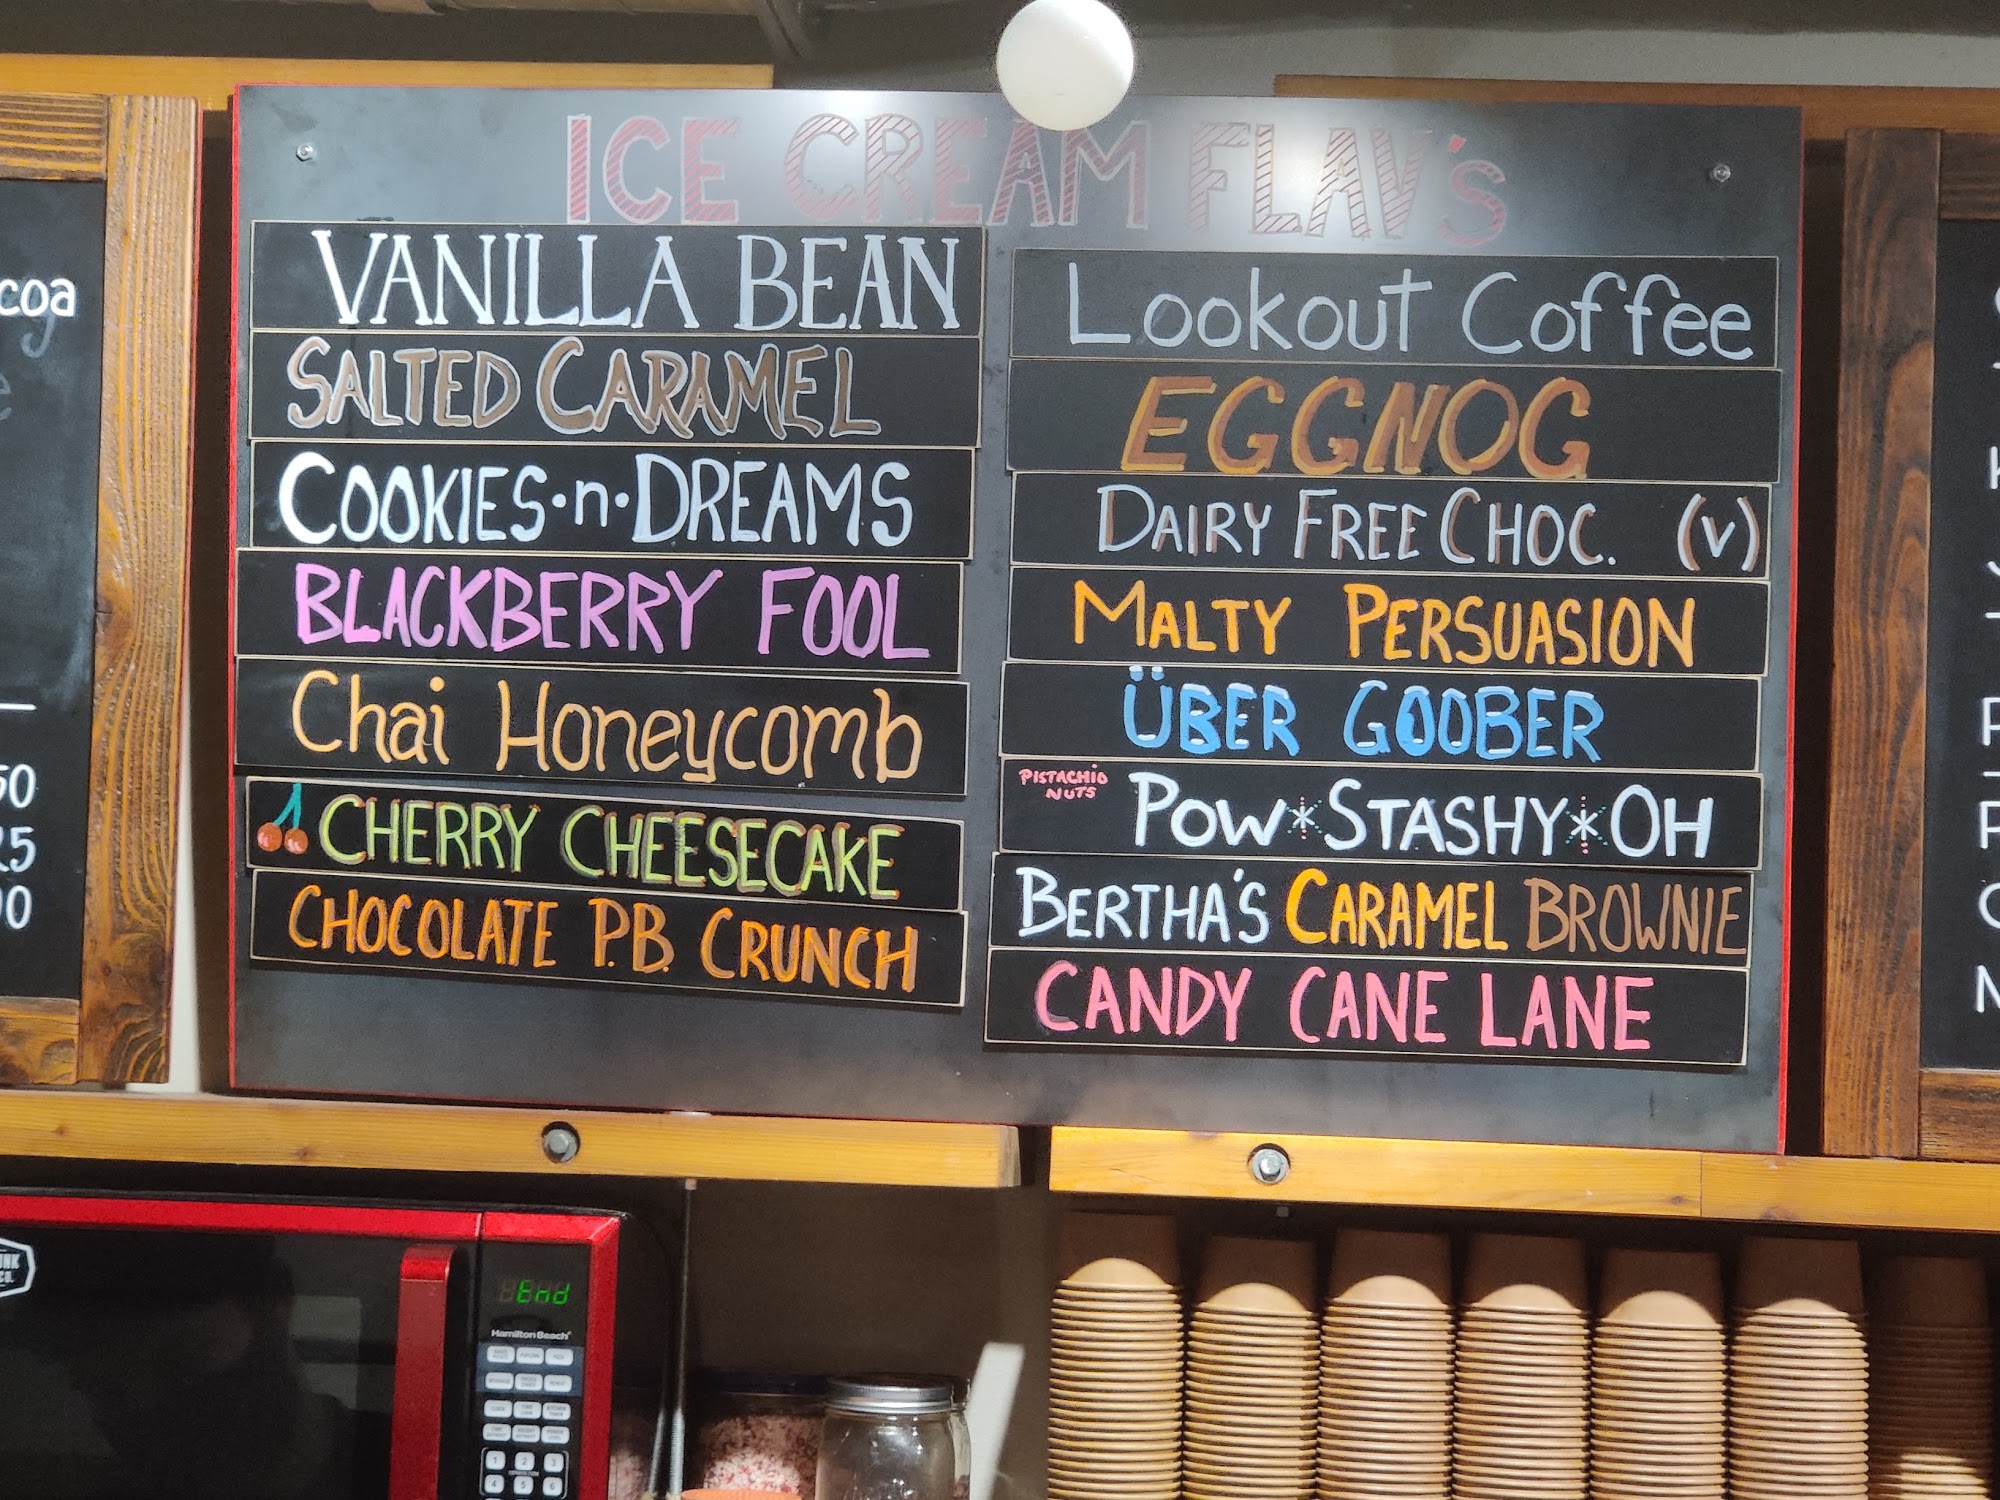 ICE CREAM FLAV's
VANILLA BEAN
SALTED CARAMEL
COOKIES·n·DREAMS
BLACKBERRY FOOL
Chai Honeycomb
CHERRY CHEESECAKE
CHOCOLATE P.B. CRUNCH
Lookout Coffee
EGGNOG
DAIRY FREE CHOC. (V)
MALTY PERSUASION
ÜBER GOOBER
PISTACHIO
NUTS
POW*STASHY*OH
BERTHA'S CARAMEL BROWNIE
CANDY CANE LANE
coa
50
25
00
End
Hamilton Beach
1 2 3
4 5 6